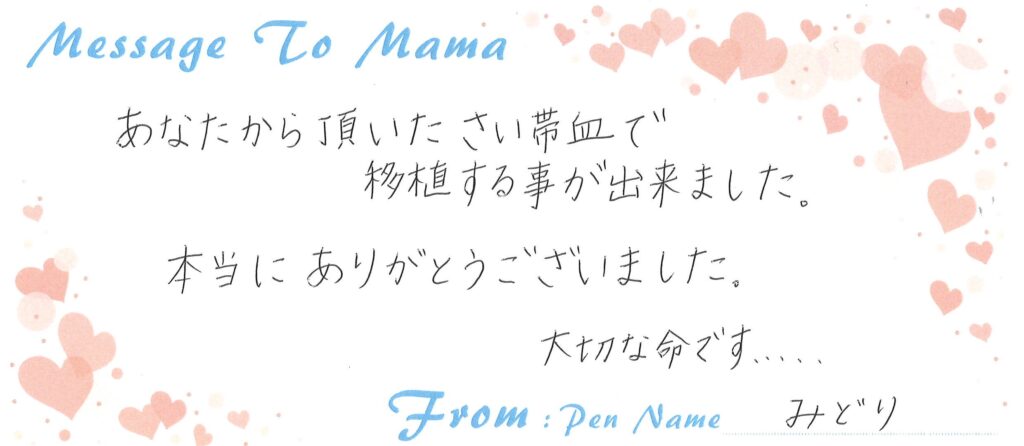 Message To Mama
あなたから頂いたさい帯血で
移植する事が出来ました。
本当にありがとうございました。
大切な命です.....
From : Pen Name みどり